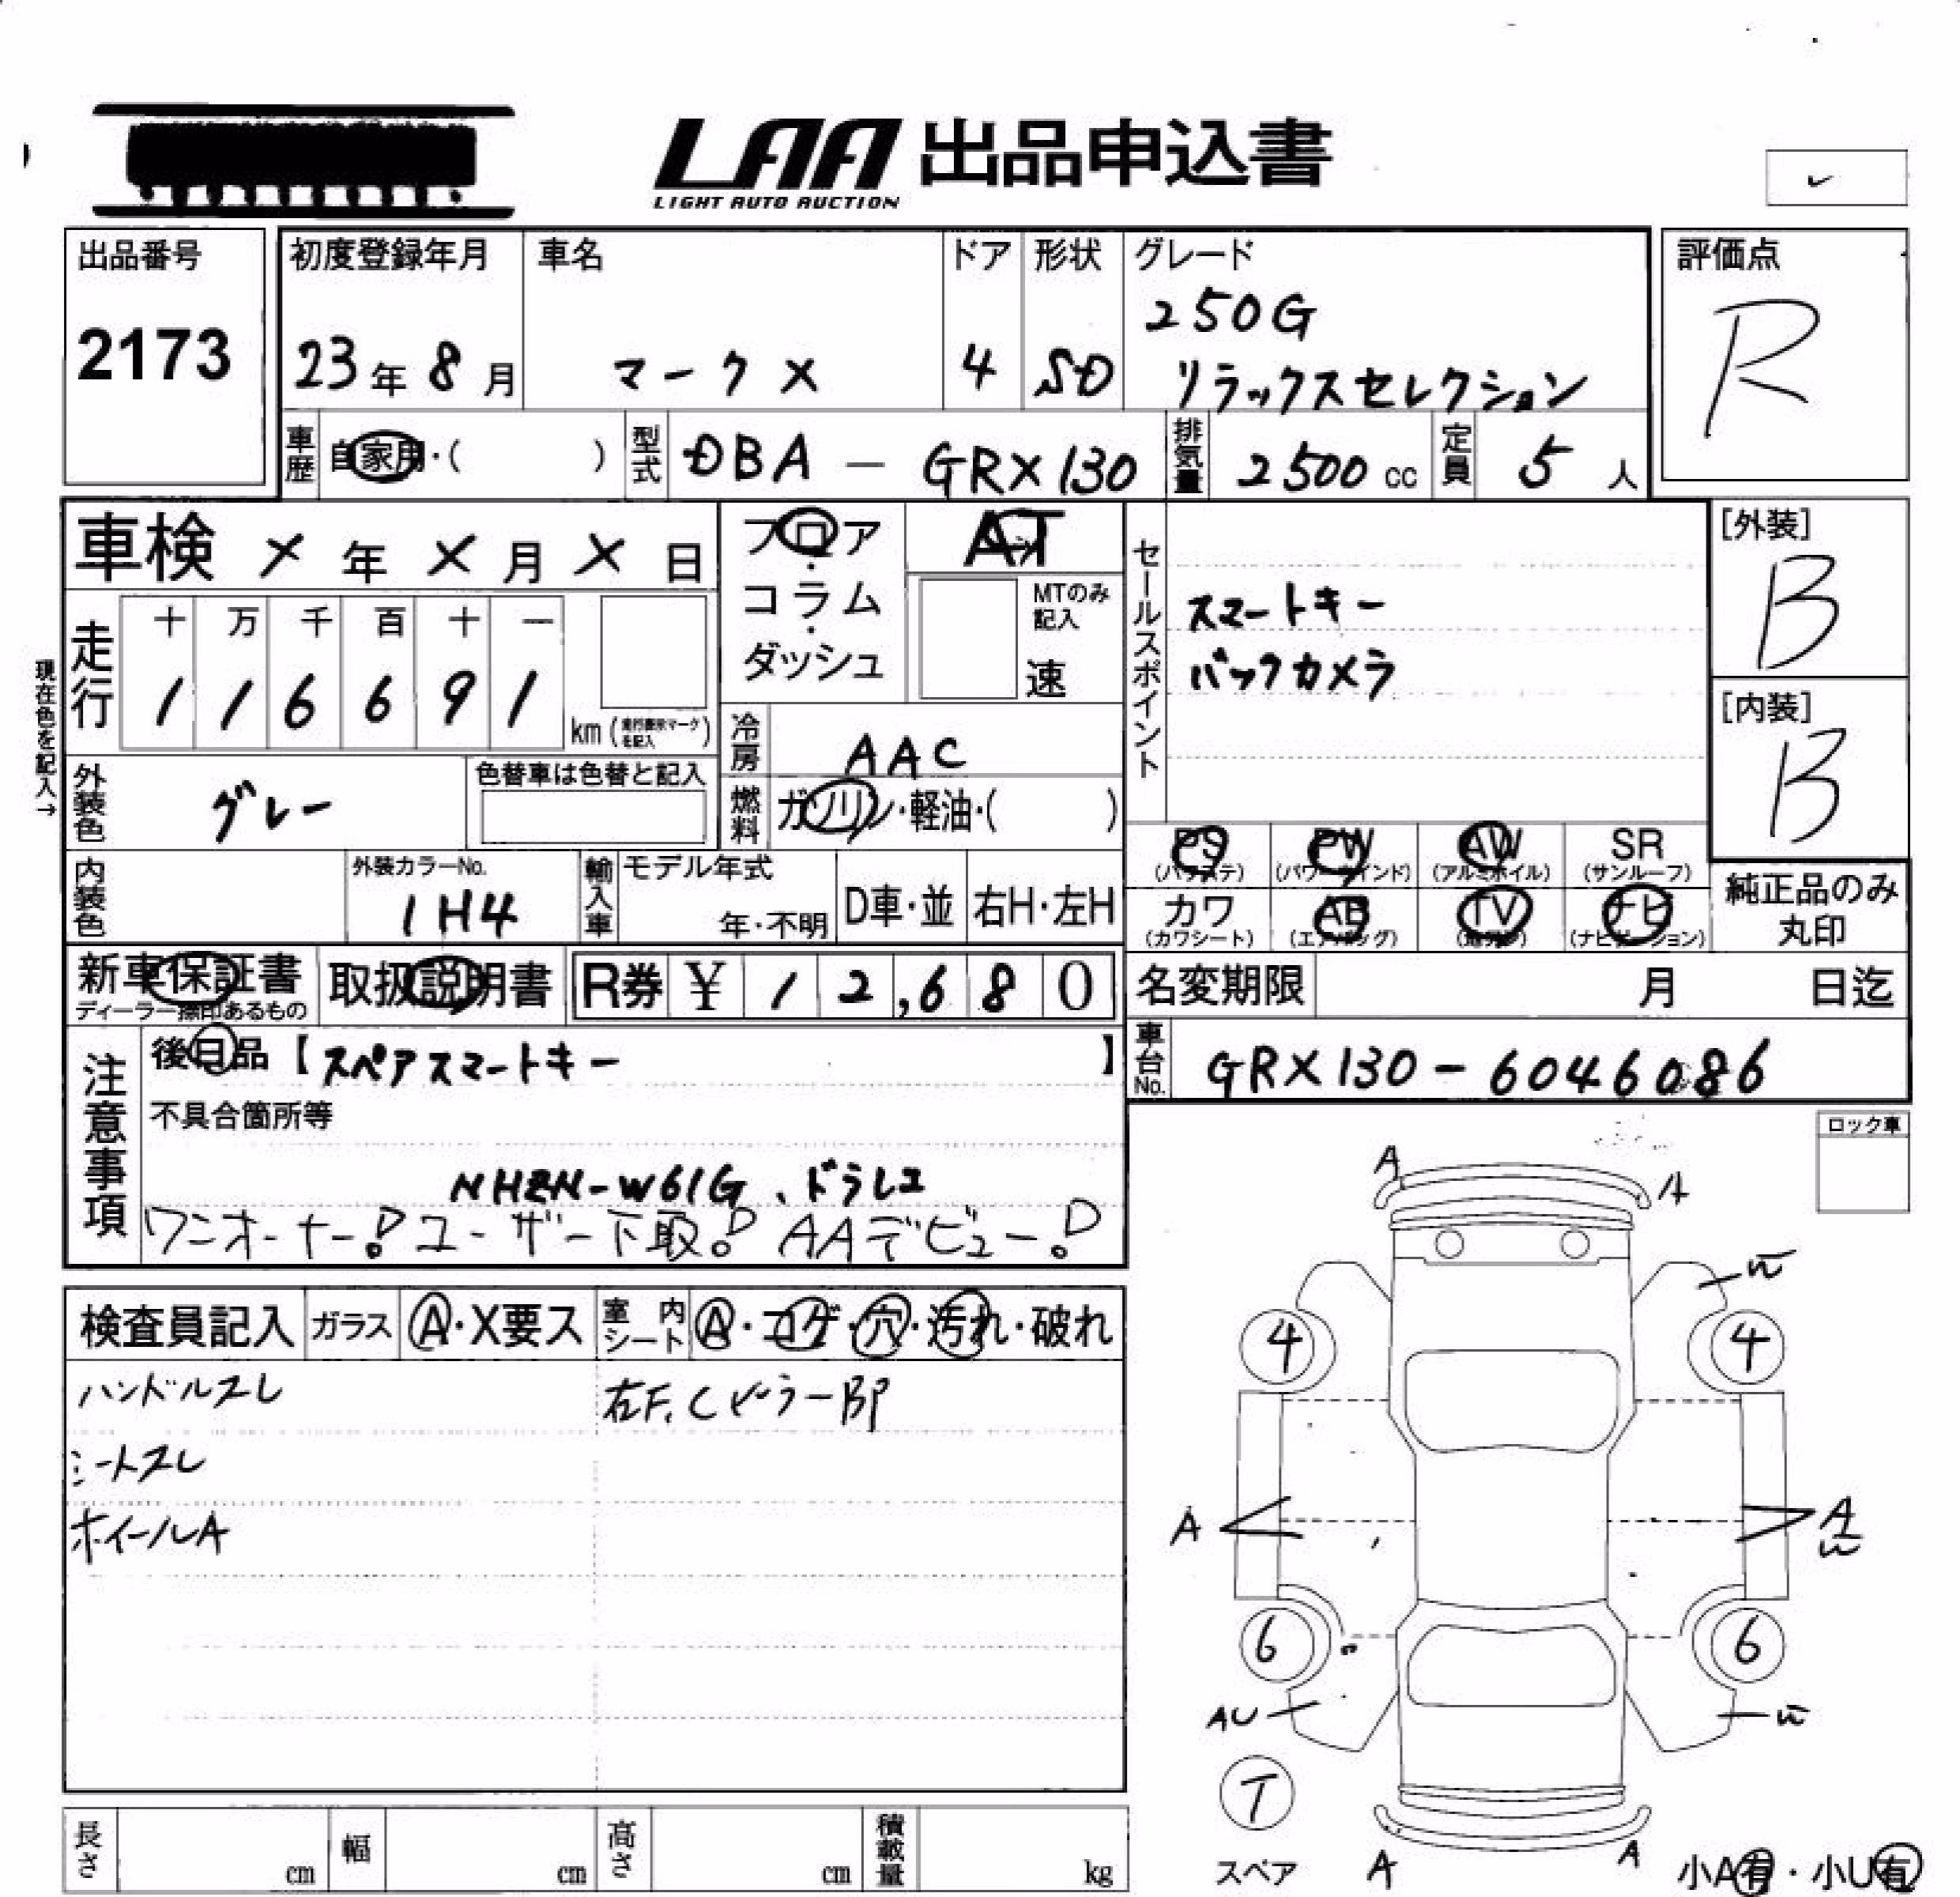 LAA 出品申込書
LIGHT AUTO AUCTION
出品番号
2173
初度登録年月
23年 8月
車名
マークX
ドア
4
形状
SD
グレード
250G
リラックスセレクション
評価点
R
車歴 自家用・( )
型式 DBA - GRX130
排気量 2500 cc
定員 5 人
車検 X年 X月 X日
フロア・コラム・ダッシュ
AT
MTのみ記入
速
現在色を記入→
走行
十 万 千 百 十 一
1 1 6 6 9 1
km (走行表示マークを記入)
冷房 AAC
燃料 ガソリン・軽油・( )
外装色 グレー
色替車は色替と記入
内装色
外装カラーNo.
1H4
輸入車
モデル年式
年・不明
D車・並
右H・左H
セールスポイント
スマートキー
バックカメラ
[外装]
B
[内装]
B
PS (パワステ)
PW (パワーウインド)
AW (アルミホイル)
SR (サンルーフ)
カワ (カワシート)
AB (エアバッグ)
TV
ナビ (ナビゲーション)
純正品のみ
丸印
新車保証書
ディーラー捺印あるもの
取扱説明書
R券 ¥ 12,680
名変期限 月 日迄
車台No. GRX130-6046086
注意事項
後日品【スペアスマートキー】
不具合箇所等
NHZN-W61G、ドラレコ
ワンオーナー! ユーザー下取! AAデビュー!
検査員記入
ガラス A・X要ス
室内シート A・コゲ・穴・汚れ・破れ
ハンドルスレ
シートスレ
ホイールA
右F、CピラーBP
ロック車
A
A
W
4
4
A
A
W
6
6
AU
W
T
スペア
A
A
小A有・小U有
長さ cm
幅 cm
高さ cm
積載量 kg